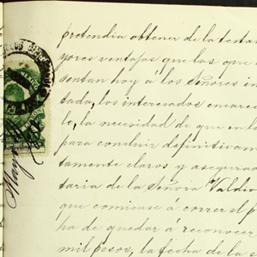 pretendia obtener de la testa
yores ventajas que las que
sentan hoy á los señores in
tada, los interesados encare
le, la necesidad de que en lo
para concluir definitivam
tamente claros y asegura
taria de la Señora Valdiv
que comience á correr el p
ha de quedar á reconocer
mil pesos, la fecha de la e